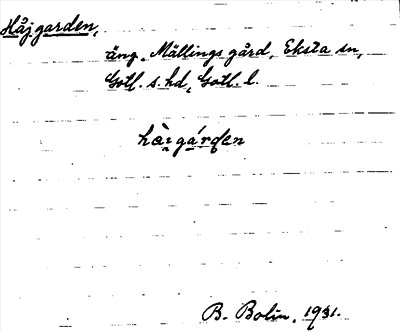 Håjgarden,
äng, Mällings gård, Eksta sn,
Gotl. s. hd, Gotl. l.
B. Bolin. 1931.